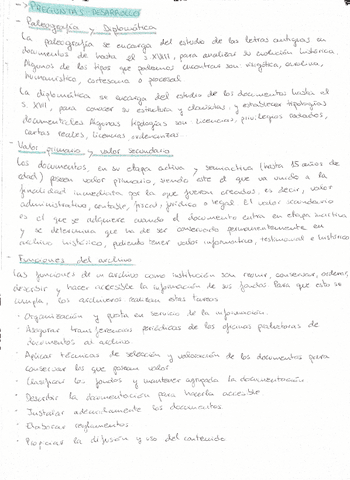 --> PREGUNTAS DESARROLLO
- Paleografía y Diplomática
La paleografía se encarga del estudio de las letras antiguas en
documentos de hasta el s. XVIII, para analizar su evolución histórica.
Algunos de los tipos que podemos encontrar son visigótica, carolina,
humanística, cortesana o procesal
La diplomática se encarga del estudio de los documentos hasta el
s. XVII, para conocer su estructura y cláusulas y establecer tipologías
documentales. Algunas tipologías son: licencias, privilegios rodados,
cartas reales, licencias, ordenanzas
- Valor primario y valor secundario
Los documentos, en su etapa activa y semiactiva (hasta 15 años de
edad) poseen valor primario, siendo este el que va unido a la
finalidad inmediata por la que fueron creados, es decir, valor
administrativo, contable, fiscal, jurídico o legal. El valor secundario
es el que se adquiere cuando el documento entra en etapa inactiva
y se determina que ha de ser conservado permanentemente en
archivo histórico, pudiendo tener valor informativo, testimonial e histórico
- Funciones del archivo
Las funciones de un archivo como institución son reunir, conservar, ordenar,
describir y hacer accesible la información de sus fondos. Para que esto se
cumpla, los archiveros realizan estas tareas
· Organización y puesta en servicio de la información.
· Asegurar transferencias periódicas de las oficinas productoras de
documentos al archivo
· Aplicar técnicas de selección y valoración de los documentos para
conservar los que posean valor
· Clasificar los fondos y mantener agrupada la documentación
· Describir la documentación para hacerla accesible
· Instalar adecuadamente los documentos
· Elaborar reglamentos
· Procurar la difusión y uso del contenido